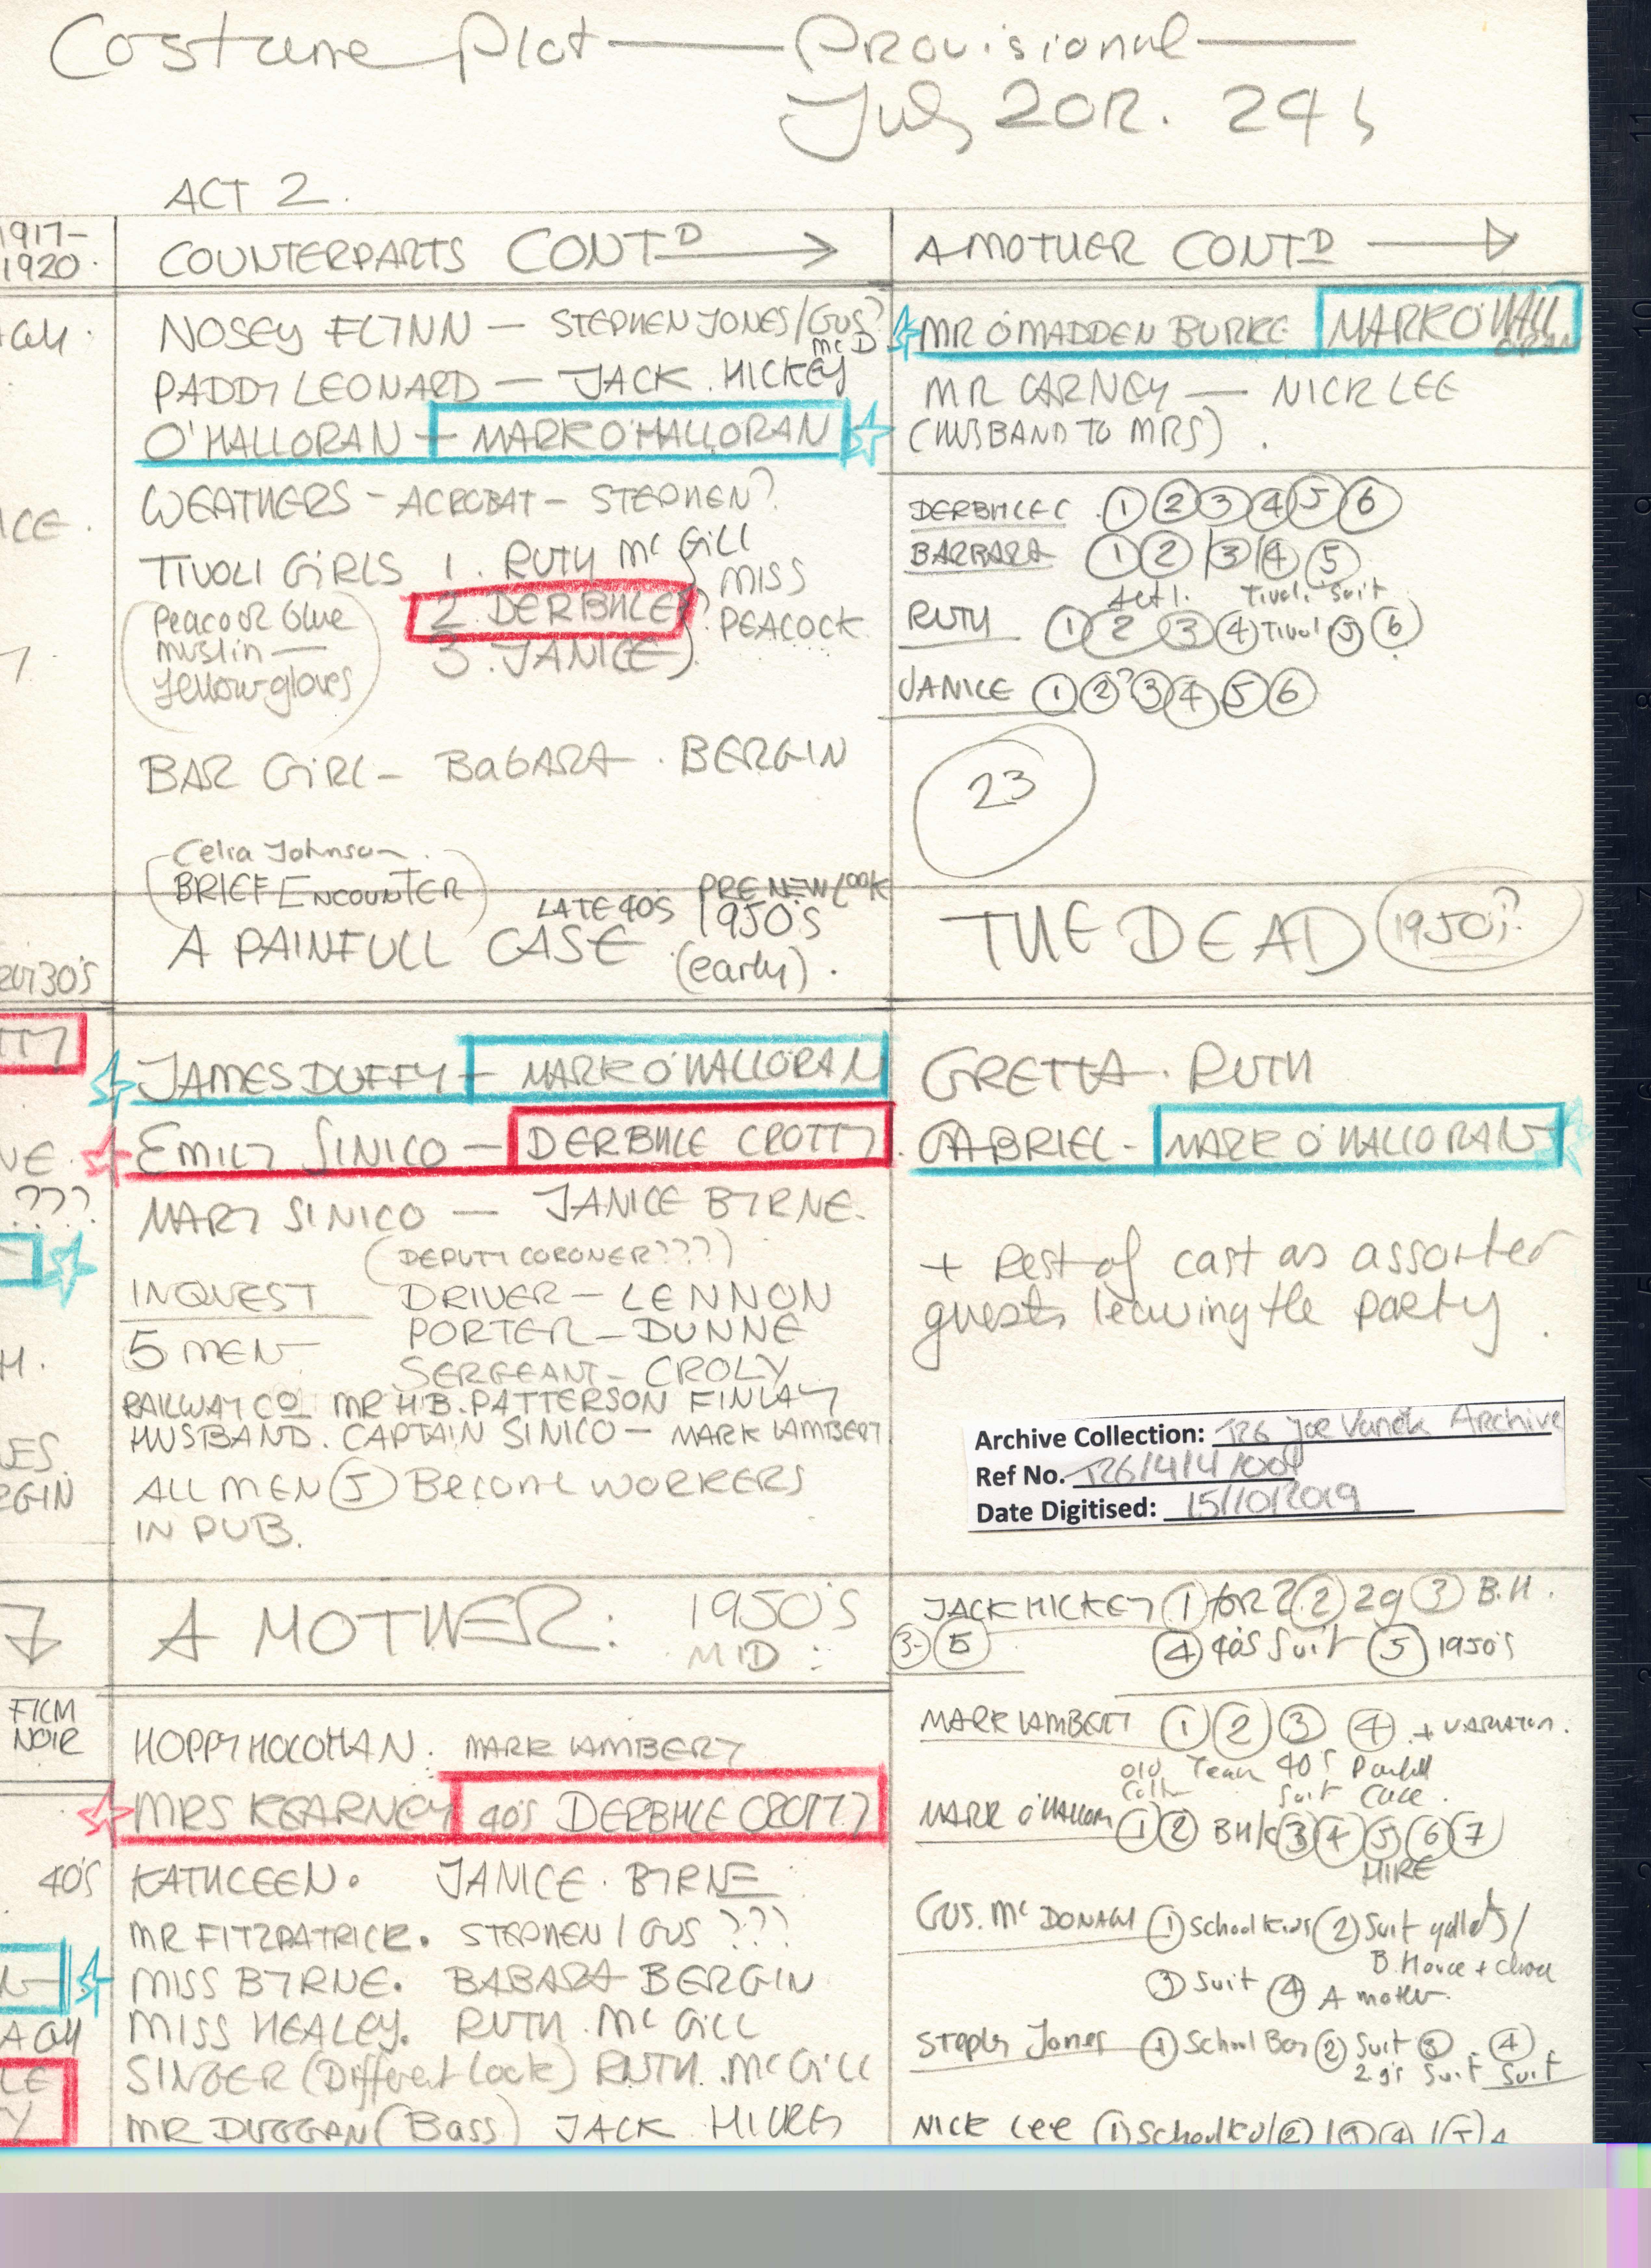 Costume Plot — Provisional —
July 2012. 24
ACT 2.
1917-
1920.
COUNTERPARTS CONTD
NOSEY FLYNN — STEPHEN JONES/GUS?
McD
PADDY LEONARD — JACK. HICKEY
O'HALLORAN — MARK O'HALLORAN
WEATHERS - ACROBAT - STEPHEN?
TIVOLI GIRLS 1. RUTH McGILL
2. DERBHLE ?
3. JANICE
MISS
PEACOCK
(Peacock blue
muslin —
yellow gloves)
BAR GIRL - BaBARA . BERGIN
(Celia Johnson.
BRIEF ENCOUNTER)
A PAINFULL CASE
LATE 40'S
PRE NEW LOOK
1950'S
(early).
30'S
JAMES DUFFY — MARK O'HALLORAN
EMILY SINICO — DERBHLE CROTTY
MARY SINICO — JANICE BYRNE.
(DEPUTY CORONER???)
INQUEST DRIVER — LENNON
5 MEN PORTER — DUNNE
SERGEANT — CROLY
RAILWAY CO MR H.B. PATTERSON FINLAY
HUSBAND. CAPTAIN SINICO — MARK LAMBERT
ALL MEN (5) Become WORKERS
IN PUB.
A MOTHER: 1950'S
MID:
FILM
NOIR
HOPPY HOLOHAN. MARK LAMBERT
MRS KEARNEY 40'S DERBHLE CROTTY
40'S
KATHLEEN. JANICE. BYRNE
MR FITZPATRICK. STEPHEN / GUS ???
MISS BYRNE. BABARA BERGIN
MISS HEALEY. RUTH. McGILL
SINGER (Different look) RUTH. McGILL
MR DUGGAN (Bass) JACK HICKEY
A MOTHER CONTD
MR O'MADDEN BURKE MARK O'HALLORAN
MR CARNEY — NICK LEE
(HUSBAND TO MRS).
DERBHLE C 1 2 3 4 5 6
BARBARA 1 2 3 4 5
Act 1. Tivoli Suit
RUTH 1 2 3 4 Tivoli 5 6
JANICE 1 2? 3 4 5 6
23
THE DEAD 1950'?
GRETTA. RUTH
GABRIEL - MARK O'HALLORAN
+ Rest of cast as assorted
guests leaving the party.
Archive Collection: TR6 Joe Vaněk Archive
Ref No. TR6/4/4/001
Date Digitised: 15/10/2019
JACK HICKEY 1 for 2 2 2g 3 B.H.
3- 5 4 40's Suit 5 1950's
MARK LAMBERT 1 2 3 4 + VARIATION.
40's Painfull
Suit Case.
MARK O'HALLORAN 1 2 BH/C 3 4 5 6 7
HIRE
GUS. McDONAGH 1 School Kids 2 Suit /
B. House +
3 Suit 4 A mother.
Stephen Jones 1 School Boy 2 Suit 3 4
2 g's Suit Suit
NICK LEE 1